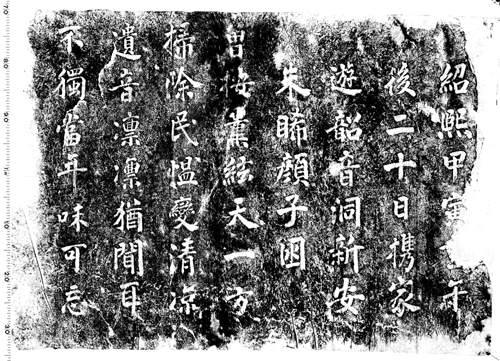 紹熙甲寅午
後二十日携家
遊韶音洞新安
朱晞顏子囦
曾按薰絃天一方
掃除民愠變清凉
遺音凛凛猶聞耳
不獨當年味可忘